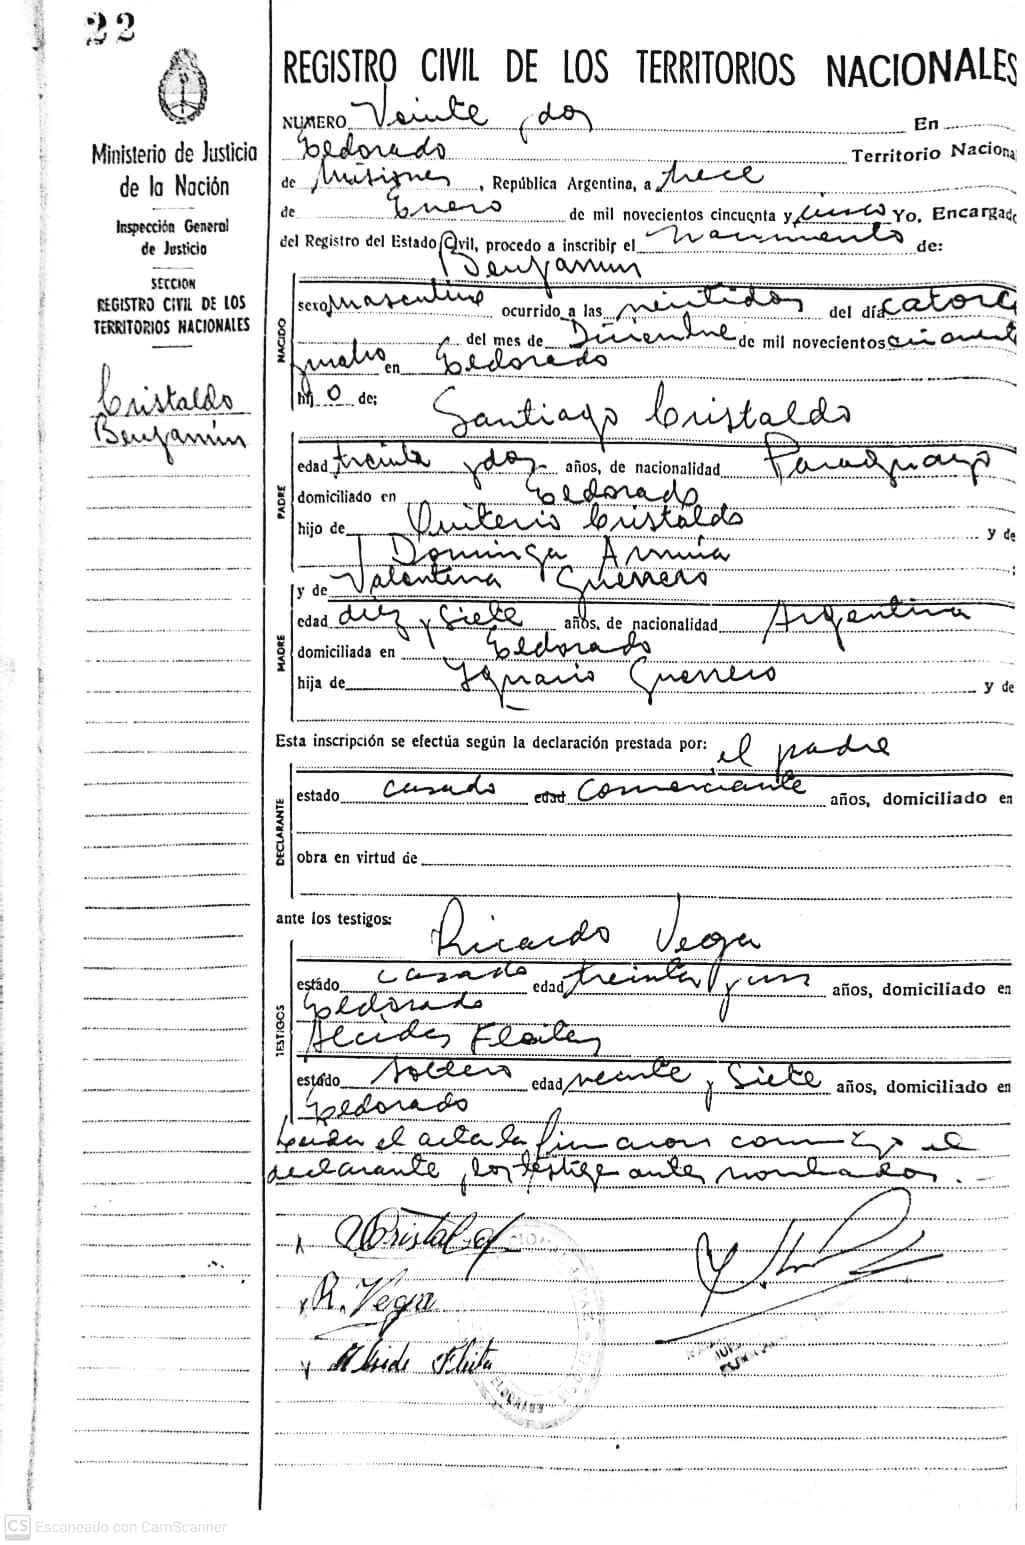 22
Ministerio de Justicia
de la Nación
Inspección General
de Justicia
SECCION
REGISTRO CIVIL DE LOS
TERRITORIOS NACIONALES
Cristaldo
Benjamín
REGISTRO CIVIL DE LOS TERRITORIOS NACIONALES
NUMERO Veinte y dos En
Eldorado Territorio Naciona
de Misiones, República Argentina, a trece
de Enero de mil novecientos cincuenta y cinco Yo, Encargado
del Registro del Estado Civil, procedo a inscribir el nacimiento de:
Benjamín
NACIDO
sexo masculino ocurrido a las veintidos del día catorce
del mes de Diciembre de mil novecientos cincuenta
y cuatro en Eldorado
hijo de:
Santiago Cristaldo
PADRE
edad treinta y dos años, de nacionalidad Paraguayo
domiciliado en Eldorado
hijo de Quiterio Cristaldo y de
Dominga
y de Valentina Guerrero
MADRE
edad diez y siete años, de nacionalidad Argentina
domiciliada en Eldorado
hija de Ygnacio Guerrero y de
Esta inscripción se efectúa según la declaración prestada por: el padre
DECLARANTE
estado casado edad comerciante años, domiciliado en
obra en virtud de
ante los testigos: Ricardo Vega
TESTIGOS
estado casado edad treinta y un años, domiciliado en
Eldorado
Alcides Fleitas
estado soltero edad veinte y siete años, domiciliado en
Eldorado
Leida el acta la firmaron conmigo el
declarante y los testigos antes nombrados.-
R. Vega
ELDORADO
CS Escaneado con CamScanner